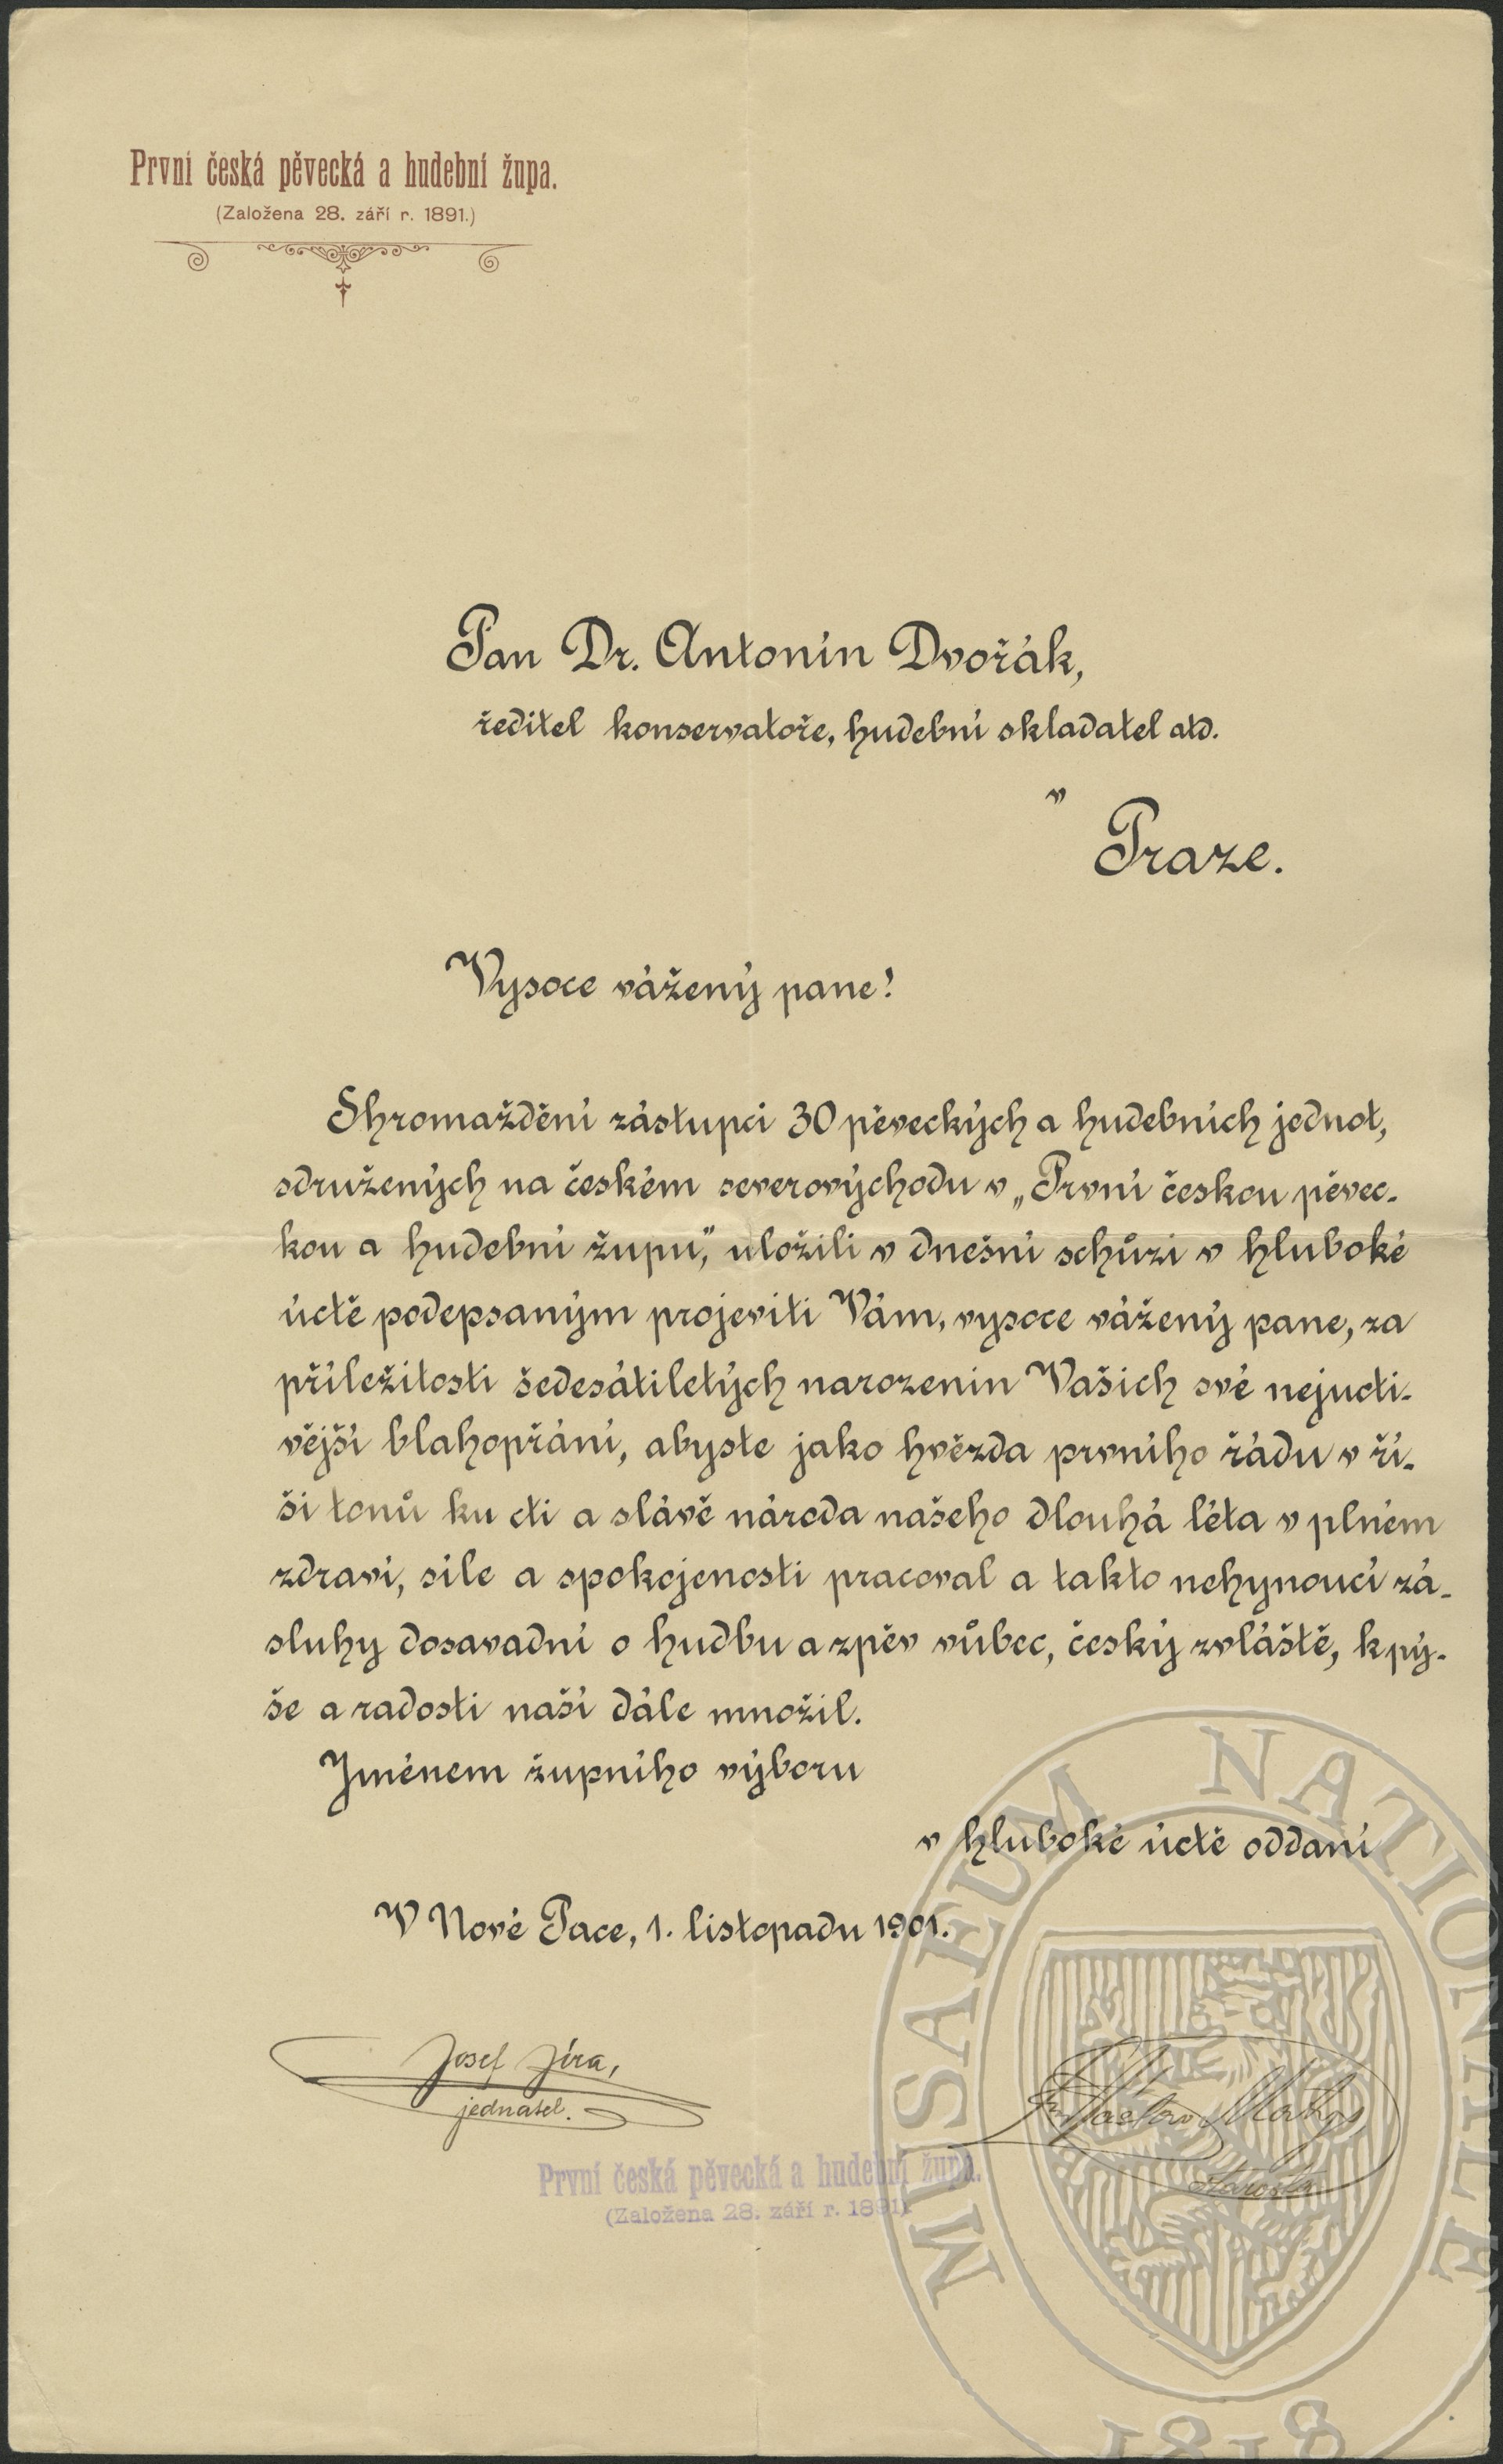 První česká pěvecká a hudební župa.
(Založena 28. září r. 1891.)
Pan Dr. Antonín Dvořák,
ředitel konservatoře, hudební skladatel atd.
v
Praze.
Vysoce vážený pane!
Shromáždění zástupci 30 pěveckých a hudebních jednot,
sdružených na českém severovýchodu v „První českou pěvec-
kou a hudební župu," uložili v dnešní schůzi v hluboké
úctě podepsaným projeviti Vám, vysoce vážený pane, za
příležitosti šedesátiletých narozenin Vašich své nejucti-
vější blahopřání, abyste jako hvězda prvního řádu v ří-
ši tonů ku cti a slávě národa našeho dlouhá léta v plném
zdraví, síle a spokojenosti pracoval a takto nehynoucí zá-
sluhy dosavadní o hudbu a zpěv vůbec, český zvláště, k pý-
še a radosti naší dále množil.
Jménem župního výboru
v hluboké úctě oddaní
V Nové Pace, 1. listopadu 1901.
Josef Jíra,
jednatel.
Václav
starosta
První česká pěvecká a hudební župa.
(Založena 28. září r. 1891)
MUSAEUM NATIONALE
1818